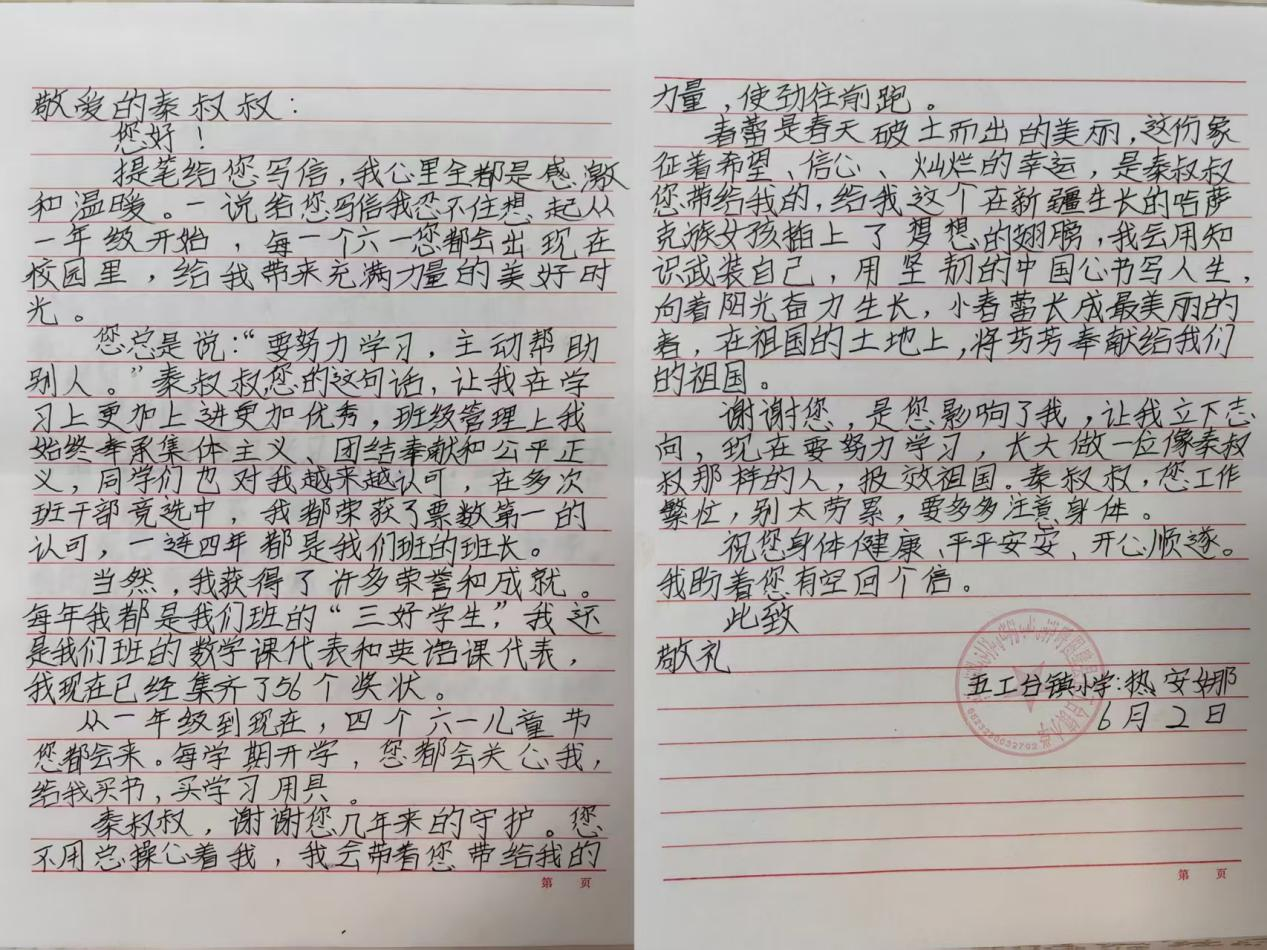 敬爱的秦叔叔：
您好！
提笔给您写信，我心里全都是感激
和温暖。一说给您写信我忍不住想起从
一年级开始，每一个六一您都会出现在
校园里，给我带来充满力量的美好时
光。
您总是说：“要努力学习，主动帮助
别人。”秦叔叔您的这句话，让我在学
习上更加上进更加优秀，班级管理上我
始终奉承集体主义、团结奉献和公平正
义，同学们也对我越来越认可，在多次
班干部竞选中，我都荣获了票数第一的
认可，一连四年都是我们班的班长。
当然，我获得了许多荣誉和成就。
每年我都是我们班的“三好学生”，我还
是我们班的数学课代表和英语课代表，
我现在已经集齐了56个奖状。
从一年级到现在，四个六一儿童节
您都会来。每学期开学，您都会关心我，
给我买书，买学习用具。
秦叔叔，谢谢您几年来的守护。您
不用总操心着我，我会带着您带给我的
第 页
力量，使劲往前跑。
春蕾是春天破土而出的美丽，这份象
征着希望、信心、灿烂的幸运，是秦叔叔
您带给我的，给我这个在新疆生长的哈萨
克族女孩插上了梦想的翅膀，我会用知
识武装自己，用坚韧的中国心书写人生，
向着阳光奋力生长，小春蕾长成最美丽的
春，在祖国的土地上，将芬芳奉献给我们
的祖国。
谢谢您，是您影响了我，让我立下志
向，现在要努力学习，长大做一位像秦叔
叔那样的人，报效祖国。秦叔叔，您工作
繁忙，别太劳累，要多多注意身体。
祝您身体健康、平平安安、开心顺遂。
我盼着您有空回个信。
此致
敬礼
五工台镇小学：热安娜
6月2日
第 页